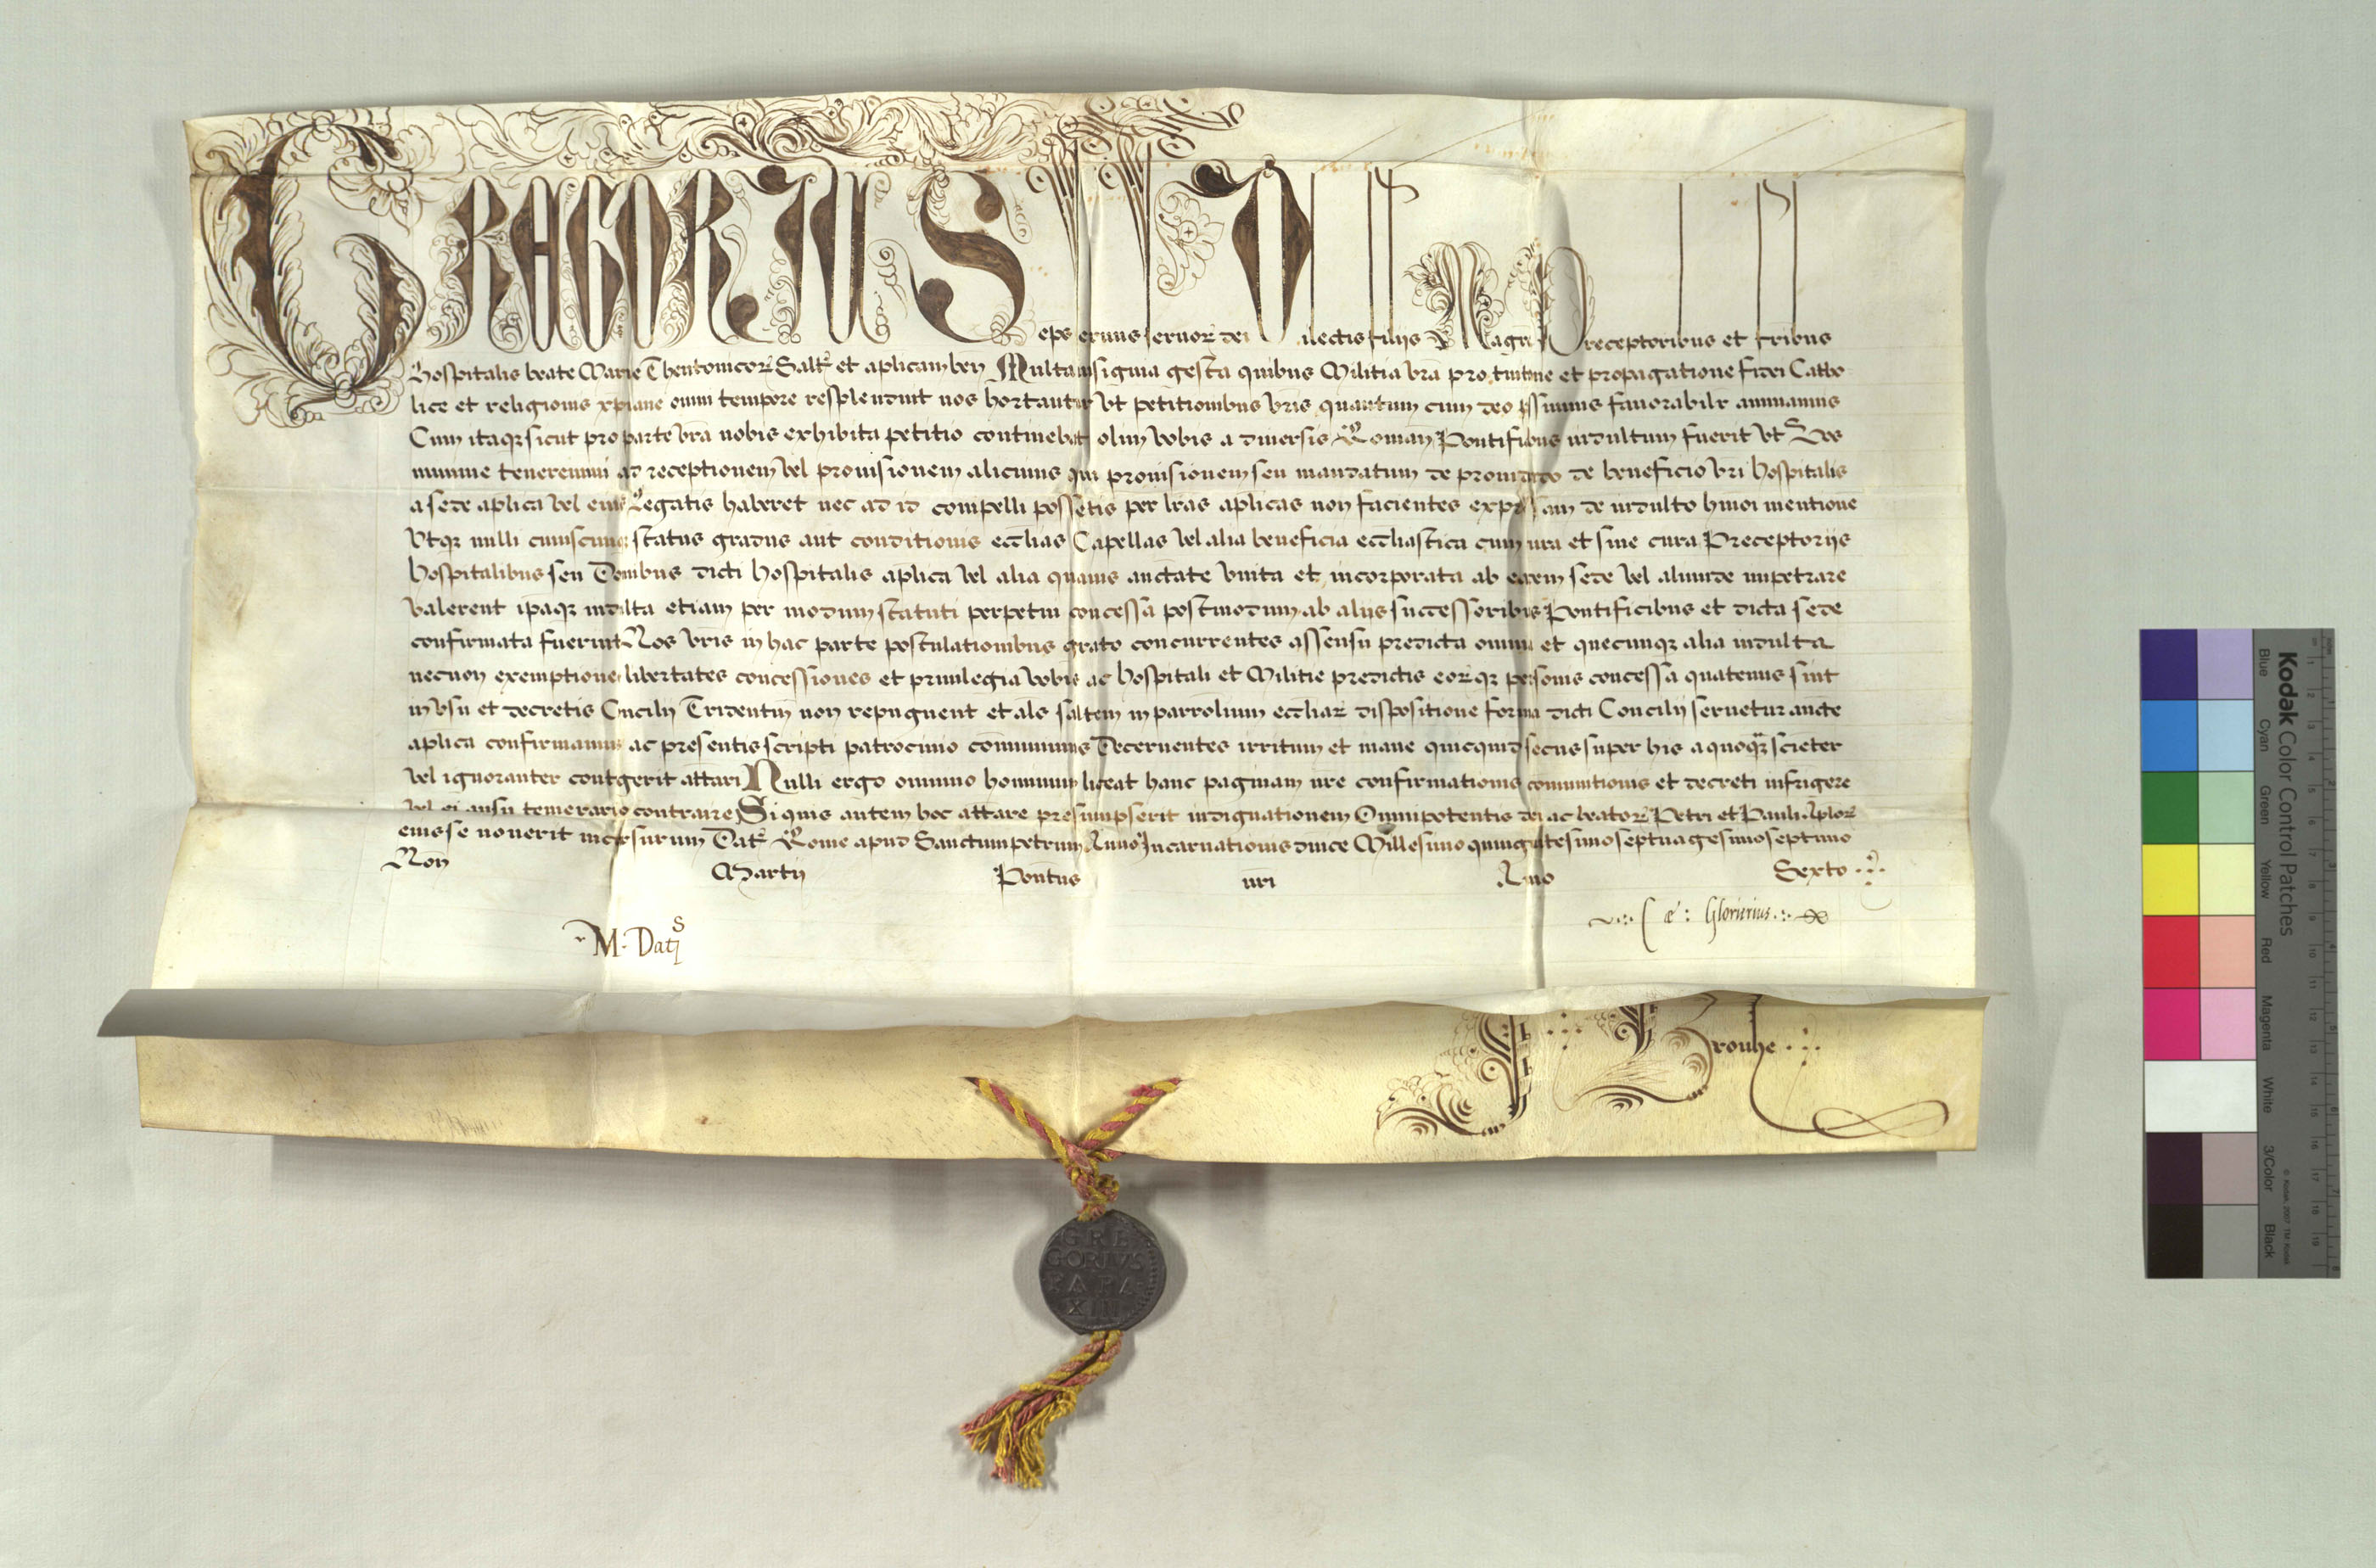 GREGORIUS eps servus servor dei Dilectis filijs Magro Preceptoribus et fribus
Hospitalis beate Marie Theutonicor Saltem et aplicam ben Multa insignia gesta quibus Militia vra pro tuitione et propagatione fidei Catho
lice et religionis xpiane omni tempore resplenduit nos hortantur vt petitionibus vris quantum cum deo pssumus favorabilr annuamus
Cum itaqz sicut pro parte vra nobis exhibita petitio continebat olim vobis a diversis Roman Pontificibus indultum fuerit vt Vos
minime teneremini ad receptionem vel provisionem alicuius qui provisionem seu mandatum de providendo de beneficio vri hospitalis
a sede aplica vel eius Legatis haberet nec ad id compelli possetis per lras aplicas non facientes expressam de indulto hmoi mentione
Vtqz nulli cuiuscunqz status gradus aut conditionis ecclias Capellas vel alia beneficia eccliastica cum cura et sine cura Preceptorijs
hospitalibus seu Domibus dicti hospitalis aplica vel alia quavis auctate vnita et incorporata ab eadem sede vel aliunde impetrare
valerent ipaqz indulta etiam per modum statuti perpetui concessa postmodum ab alijs successoribus Pontificibus et dicta sede
confirmata fuerint Nos vris in hac parte postulationibus grato concurrentes assensu predicta omnia et quecunqz alia indulta
necnon exemptiones libertates concessiones et privilegia vobis ac hospitali et Militie predictis eorqz personis concessa quatenus sint
in vsu et decretis Concilij Tridentin non repugnent et als saltem in parrolium eccliar dispositione forma dicti Concilij servetur aucte
aplica confirmamus ac presentis scripti patrocinio communimus Decernentes irritum et inane quicquid secus super his a quoqz scieter
vel ignoranter contigerit attari Nulli ergo omnino hominum liceat hanc paginam nre confirmationis comunitionis et decreti infrigere
vel ei ausu temerario contraire Si quis autem hoc attare presumpserit indignationem Omnipotentis dei ac beator Petri et Pauli Aplor
eius se noverit incursurum Dat Rome apud Sanctum petrum Anno Incarnationis dnice Millesimo quingentesimo septuagesimo septimo
Non Martij Pontus nri Anno Sexto
Cae: Glorierius
M. Datis
Brouhe
GRE
GORIVS
PAPA
XIII
Kodak Color Control Patches
Blue Cyan Green Yellow Red Magenta White 3/Color Black
© Kodak, 2007 TM: Kodak